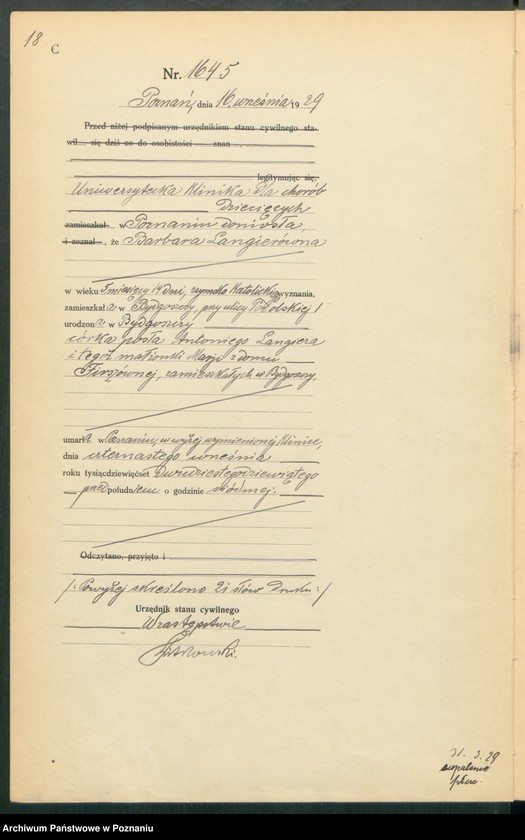 18
C
Nr. 1645
Poznań, dnia 16 września 1929
Przed niżej podpisanym urzędnikiem stanu cywilnego sta-
wił się dziś co do osobistości znan
legitymując się,
Uniwersytecka Klinika dla chorób
Dziecięcych
zamieszkał w Poznaniu doniosła,
i zeznał, że Barbara Langierówna
w wieku miesięcy 14 dni, rzymsko Katolickiego wyznania,
zamieszkała w Bydgoszczy, przy ulicy
urodzona w Bydgoszczy
córka posła Antoniego Langiera
i tegoż małżonki Marji z domu
zamieszkałych w Bydgoszczy
umarła w Poznaniu, w wyżej wymienionej Klinice,
dnia czternastego września
roku tysiącdziewięćset dwudziestegodziewiątego
przed południem o godzinie siódmej.
Odczytano, przyjęto i
/: Powyżej skreślono 21 słów druku :/
Urzędnik stanu cywilnego
W zastępstwie
29
Archiwum Państwowe w Poznaniu